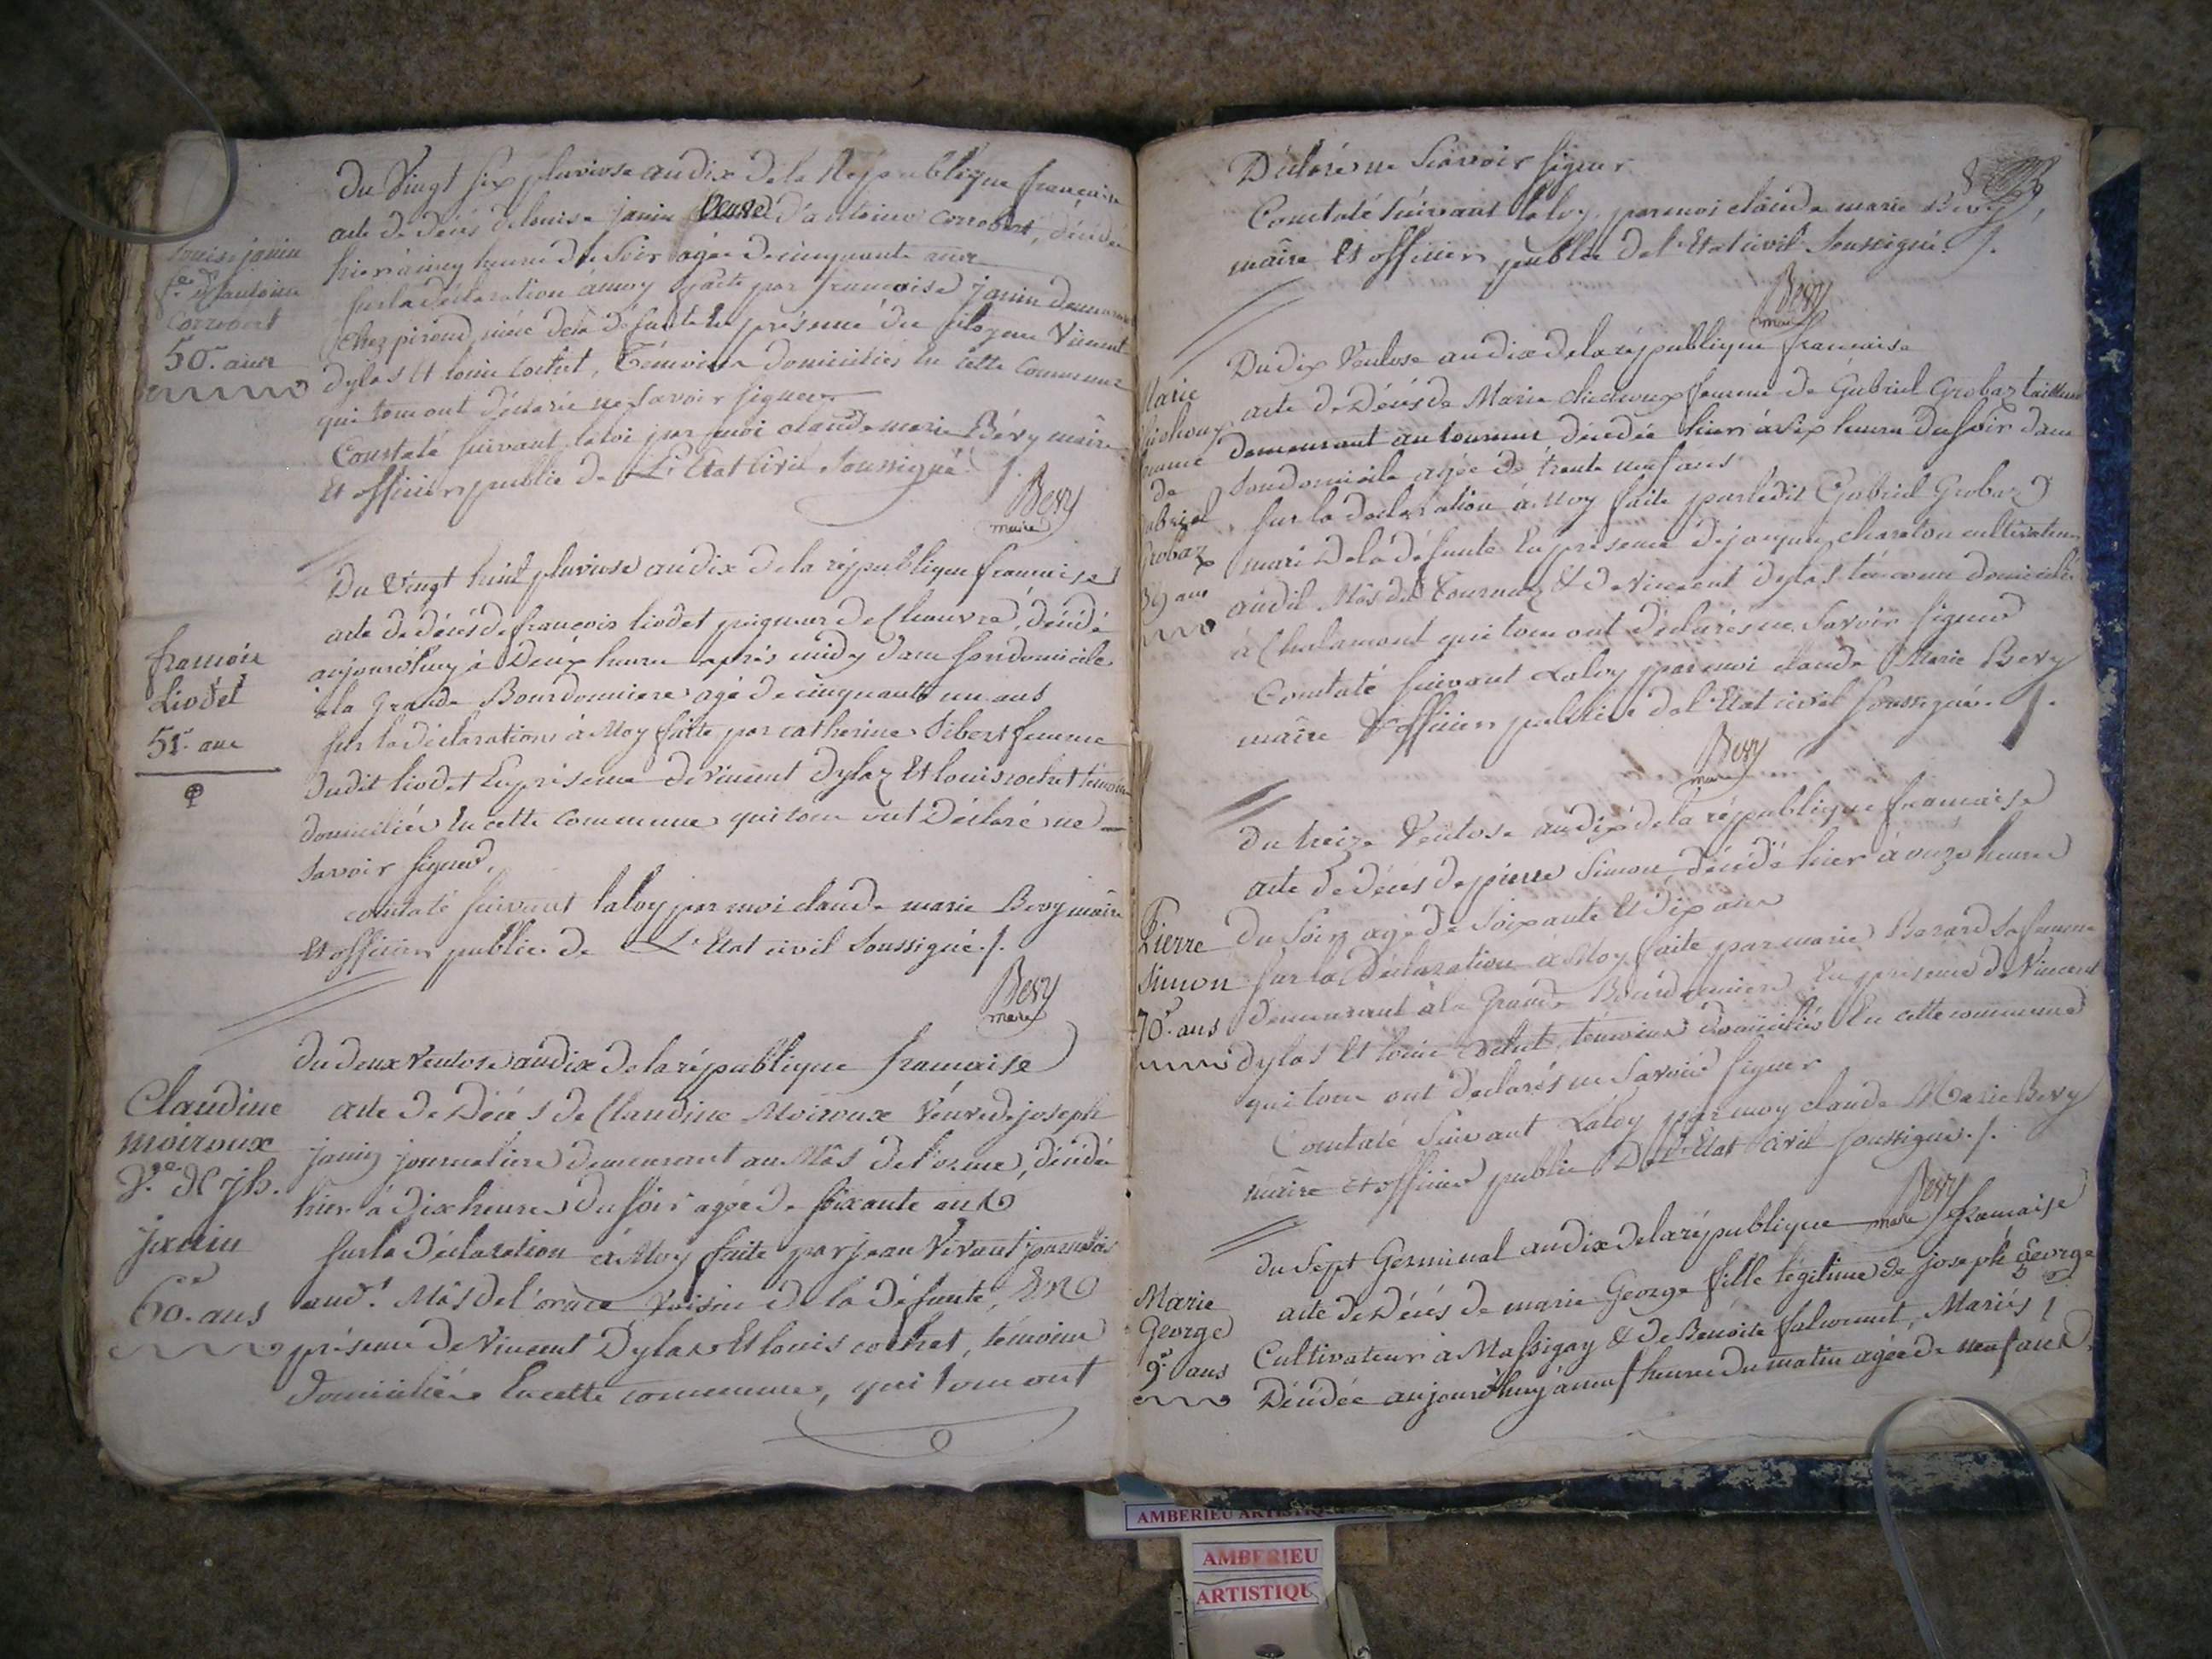 Louise janin
fe. d'antoine
Corrobert
50. ans
Du Vingt six pluviose an dix de la République française
acte de décés de louise janin veuve d'antoine Corrobert, décédée
hier à cinq heures du Soir agée de cinquante ans
sur la déclaration à moy faite par francoise janin demeurant
chez piroud, niéce de la défunte En présence du citoyen Vincent
dylas Et louis cochet, Témoins domiciliés En cette Commune
qui tous ont déclaré ne Savoir signer
Constaté suivant la loi par moi claude marie Bévy maire
Et officier public de L'Etat Civil Soussigné ./.
Bevy
maire
francois
Liodet
51. ans
Du Vingt huit pluviose an dix de la république francaise
acte de décés de françois liodet peigneur de Chanvre, décédé
aujourd'huy à Deux heures après midy dans son domicile
à la Grande Bourdonniere agé de cinquante un ans
sur la déclaration à Moy faite par catherine Sibert femme
dudit liodet En présence de Vincent dylaz Et louis cochet témoins
domiciliés En cette Commune qui tous ont Déclaré ne
Savoir signer.
constaté suivant la loy par moi claude marie Bevy maire
Et officier public de L'Etat civil Soussigné ./.
Bevy
maire
Claudine
moiroux
Ve. de jh.
janin
60. ans
du deux Ventose an dix de la république francaise
acte de Décés de Claudine Moiroux Veuve de joseph
janin journaliere demeurant au Mâs de l'orme, décédée
hier à dix heures du soir agée de soixante ans
sur la déclaration à Moy faite par jean Vivant journalier
aud. Mâs de l'orme Voisin de la défunte, En
présence de Vincent Dylas Et louis cochet, témoins
domiciliés En cette commune, qui tous ont
Déclaré ne Scavoir signer
Constaté suivant la loy par moi claude marie Bevy,
maire Et officier public de l'Etat civil Soussigné ./.
Bevy
maire
Marie
femme
de
Gabriel
Grobaz
39 ans
Du dix Ventose an dix de la république francaise
acte de Décés de Marie femme de Gabriel Grobaz tailleur
demeurant au tournus décédée hier à six heures du soir dans
son domicile agée de trente neuf ans
sur la déclaration à Moy faite par ledit Gabriel Grobaz
mari de la défunte En présence de jacques charaton cultivateur
audit Mâs du Tournus & de Vincent dylas témoins domiciliés
à Chalamont qui tous ont déclarés ne Savoir signer
Constaté suivant La loy par moi claude Marie Bevy
maire & officier public de l'Etat civil soussigné ./.
Bevy
maire
Pierre
Simon
70. ans
du treize Ventose an dix de la république francaise
acte de décés de pierre Simon décédé hier à onze heures
du Soir agé de Soixante Et dix ans
sur la déclaration à Moy faite par marie Barard sa femme
demeurant à la Grande Bourdonniere En présence de Vincent
dylas Et louis cochet témoins domiciliés En cette commune
qui tous ont déclarés ne Savoir signer
Constaté Suivant La loy par moy claude Marie Bevy
maire et officier public De l'Etat civil soussigné ./.
Bevy
maire
Marie
George
9. ans
du Sept Germinal an dix de la république francaise
acte de Décés de marie George fille légitime de joseph George
Cultivateur à Massigay & de Benoite Mariés
Décédée aujourd'huy à neuf heures du matin agée de neuf ans
AMBERIEU ARTISTIQUE
AMBERIEU
ARTISTIQU